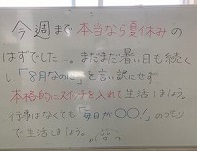 今週まで本当なら夏休みの
はずでした…。まだまだ暑い日も続く
し「8月なのに」を言い訳にせず
本格的にスイッチを入れて生活しましょう。
行事はなくても「毎日が〇〇!」のつもり
で生活しましょう。